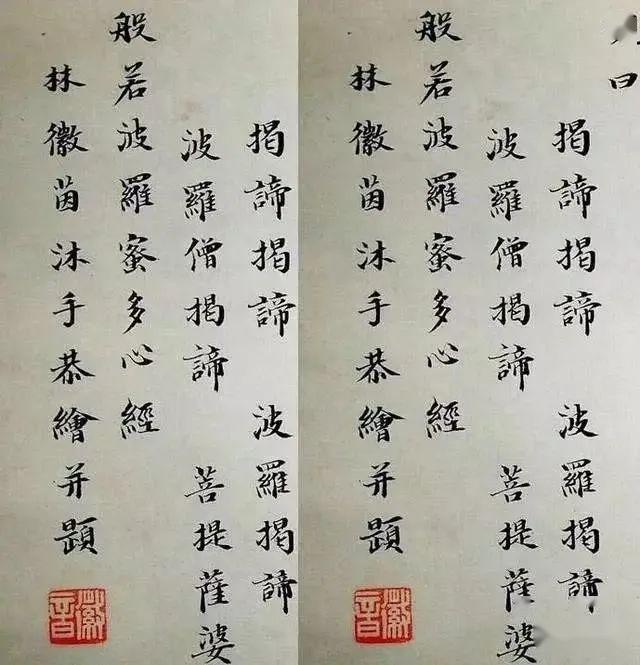 曰
揭諦揭諦 波羅揭諦
波羅僧揭諦 菩提薩婆
般若波羅蜜多心經
林徽茵沐手恭繪并題
徽音
揭諦揭諦 波羅揭諦
波羅僧揭諦 菩提薩婆
般若波羅蜜多心經
林徽茵沐手恭繪并題
徽音